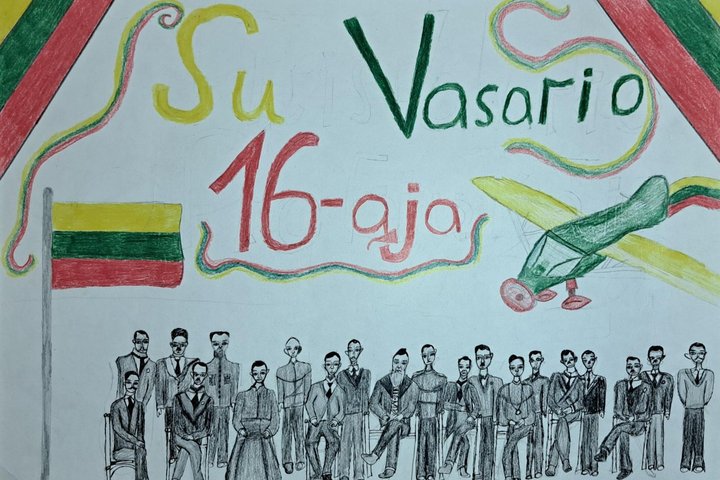 Su Vasario
16-ąja